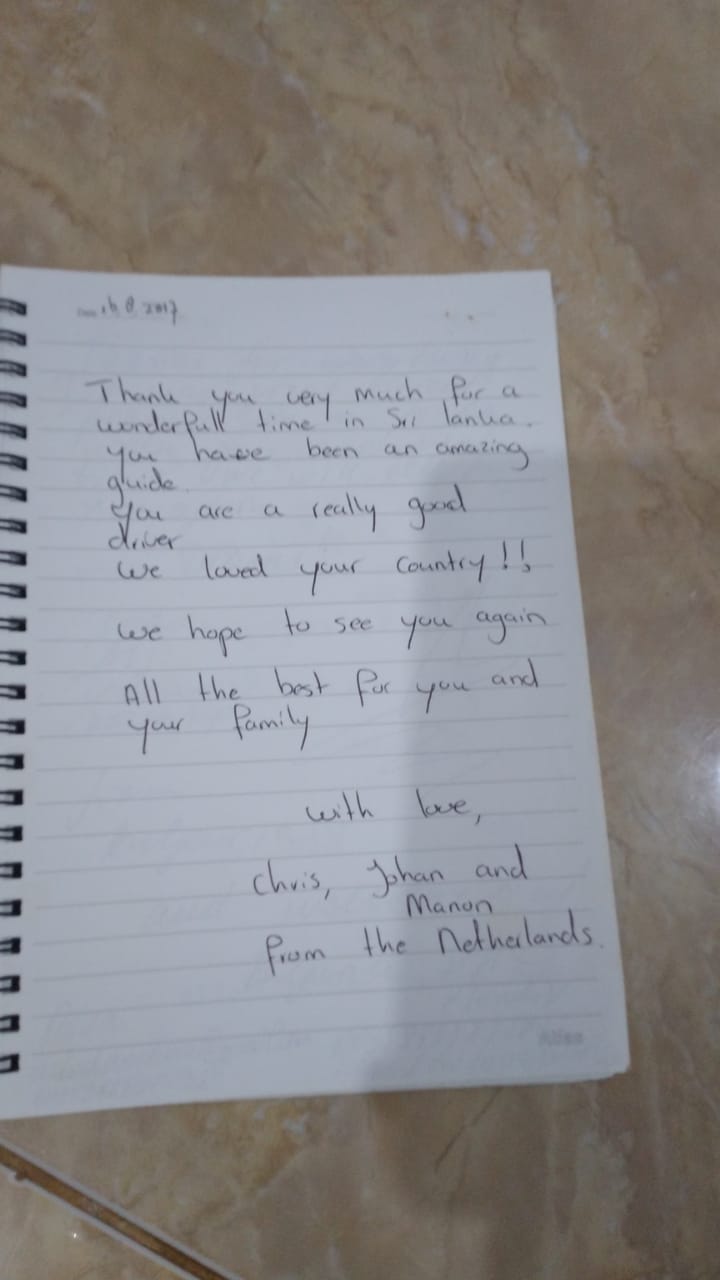 8 2017
Thank you very much for a
wonderfull time in Sri lanka.
you have been an amazing
guide.
You are a really good
driver
We loved your country!!
We hope to see you again
All the best for you and
your family
with love,
Chris, Johan and
Manon
from the Netherlands.
Atlas